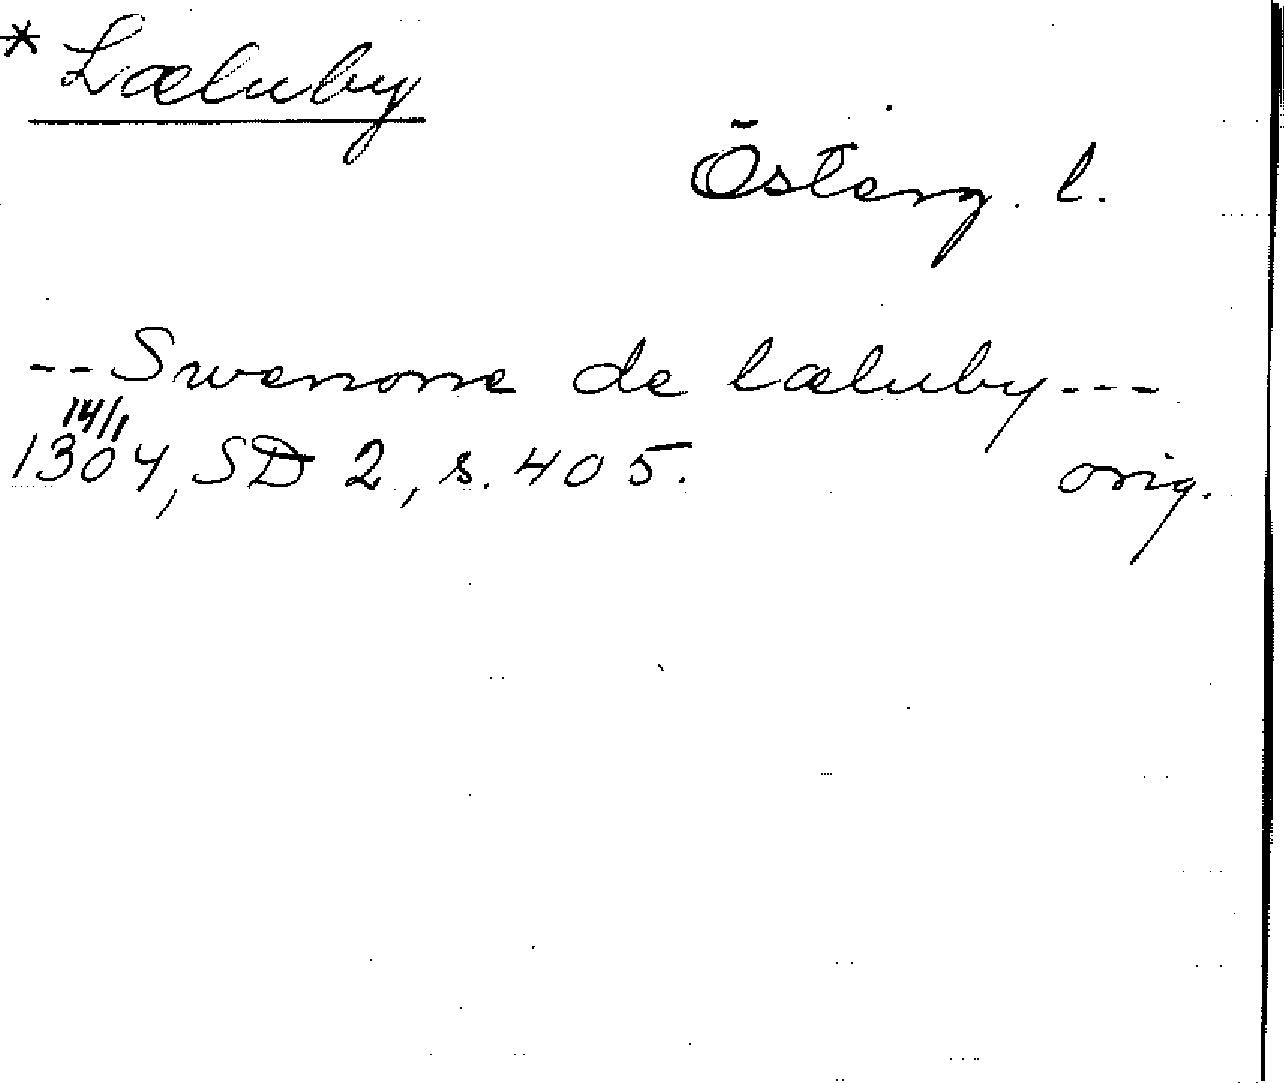 * Læluby
Österg. l.
--Swenone de læluby---
14/1
1304, SD 2, s. 405. orig.